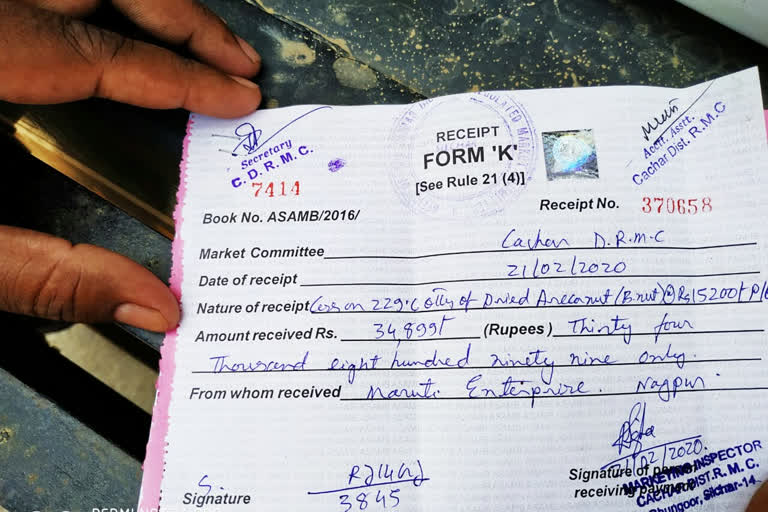 RECEIPT
FORM 'K'
[See Rule 21 (4)]
Secretary
C. D. R. M. C.
Acctt. Asstt.
Cachar Dist. R.M.C
7414
Book No. ASAMB/2016/
Receipt No. 370658
Market Committee Cachar D.R.M.C
Date of receipt 21/02/2020
Nature of receipt Cess on 229 Qtty of Dried Arecanut (B.nut) @ Rs 15200/- P/
Amount received Rs. 34,899/- (Rupees) Thirty four
Thousand eight hundred ninety nine only.
From whom received Maruti Enterprise. Nagpur.
/02/2020.
Signature
3845
Signature of
receiving
MARKETING INSPECTOR
CACHAR DIST. R. M. C.
Silchar-14